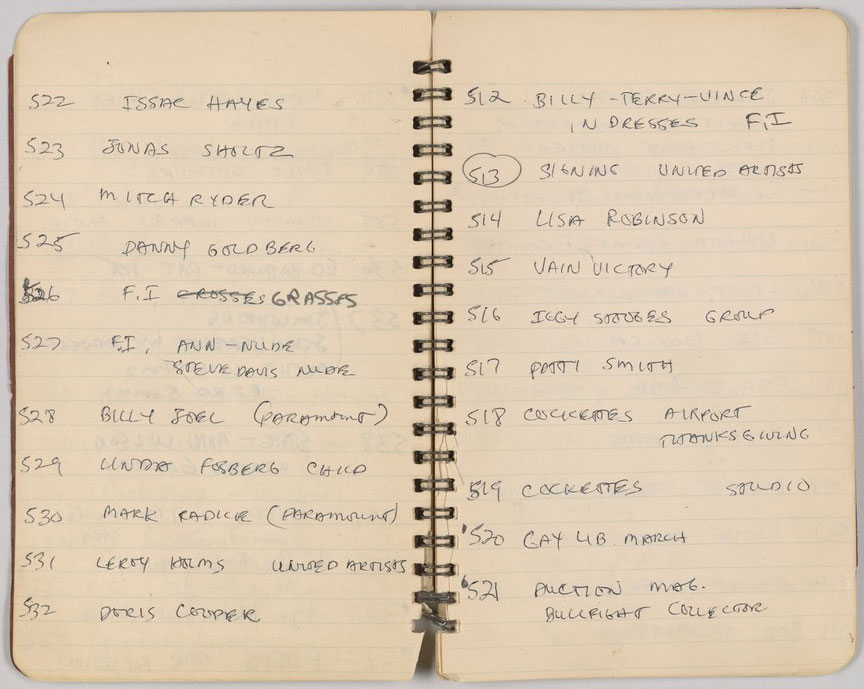 522 ISSAC HAYES
523 JONAS SHOLTZ
524 MITCH RYDER
525 DANNY GOLDBERG
526 F.I GROSSES GRASSES
527 F.I, ANN-NUDE
STEVE DAVIS NUDE
528 BILLY JOEL (PARAMOUNT)
529 LINDA FOSBERG CHILD
530 MARK RADICE (PARAMOUNT)
531 LEROY HOLMS UNITED ARTISTS
532 DORIS COOPER
512 BILLY-TERRY-VINCE
IN DRESSES F.I
513 SIGNING UNITED ARTISTS
514 LISA ROBINSON
515 VAIN VICTORY
516 IGGY STOOGES GROUP
517 PATTI SMITH
518 COCKETTES AIRPORT
THANKSGIVING
519 COCKETTES STUDIO
520 GAY LIB MARCH
521 AUCTION MAG.
BULLFIGHT COLLECTOR